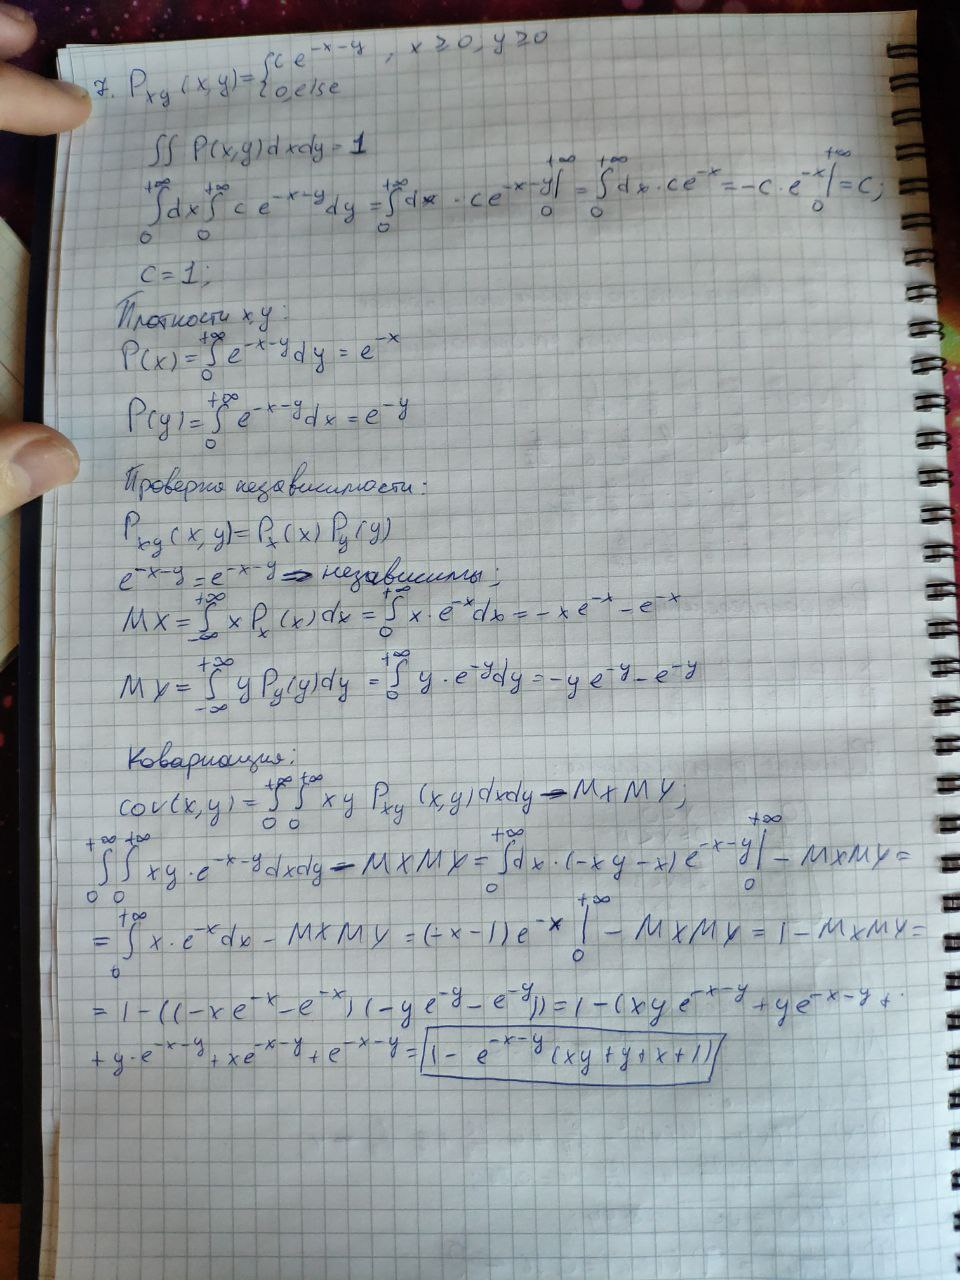 7. P_xy (x,y) = { c e^{-x-y}, x ≥ 0, y ≥ 0
{ 0, else
∫∫ P(x,y) dxdy = 1
∫_0^{+∞} dx ∫_0^{+∞} c e^{-x-y} dy = ∫_0^{+∞} dx · c e^{-x-y} |_0^{+∞} = ∫_0^{+∞} dx · c e^{-x} = -c · e^{-x} |_0^{+∞} = c;
c = 1;
Плотности x,y:
P(x) = ∫_0^{+∞} e^{-x-y} dy = e^{-x}
P(y) = ∫_0^{+∞} e^{-x-y} dx = e^{-y}
Проверка независимости:
P_xy (x,y) = P_x (x) P_y (y)
e^{-x-y} = e^{-x-y} => независимы;
MX = ∫_{-∞}^{+∞} x P_x (x) dx = ∫_0^{+∞} x · e^{-x} dx = -x e^{-x} - e^{-x}
MY = ∫_{-∞}^{+∞} y P_y (y) dy = ∫_0^{+∞} y · e^{-y} dy = -y e^{-y} - e^{-y}
Ковариация:
cov(x,y) = ∫_0^{+∞} ∫_0^{+∞} xy P_xy (x,y) dxdy - MXMY;
∫_0^{+∞} ∫_0^{+∞} xy · e^{-x-y} dxdy - MXMY = ∫_0^{+∞} dx · (-xy - x) e^{-x-y} |_0^{+∞} - MXMY =
= ∫_0^{+∞} x · e^{-x} dx - MXMY = (-x - 1) e^{-x} |_0^{+∞} - MXMY = 1 - MXMY =
= 1 - ((-x e^{-x} - e^{-x}) (-y e^{-y} - e^{-y})) = 1 - (xy e^{-x-y} + y e^{-x-y} +
+ y · e^{-x-y} + x e^{-x-y} + e^{-x-y} = 1 - e^{-x-y} (xy + y + x + 1)